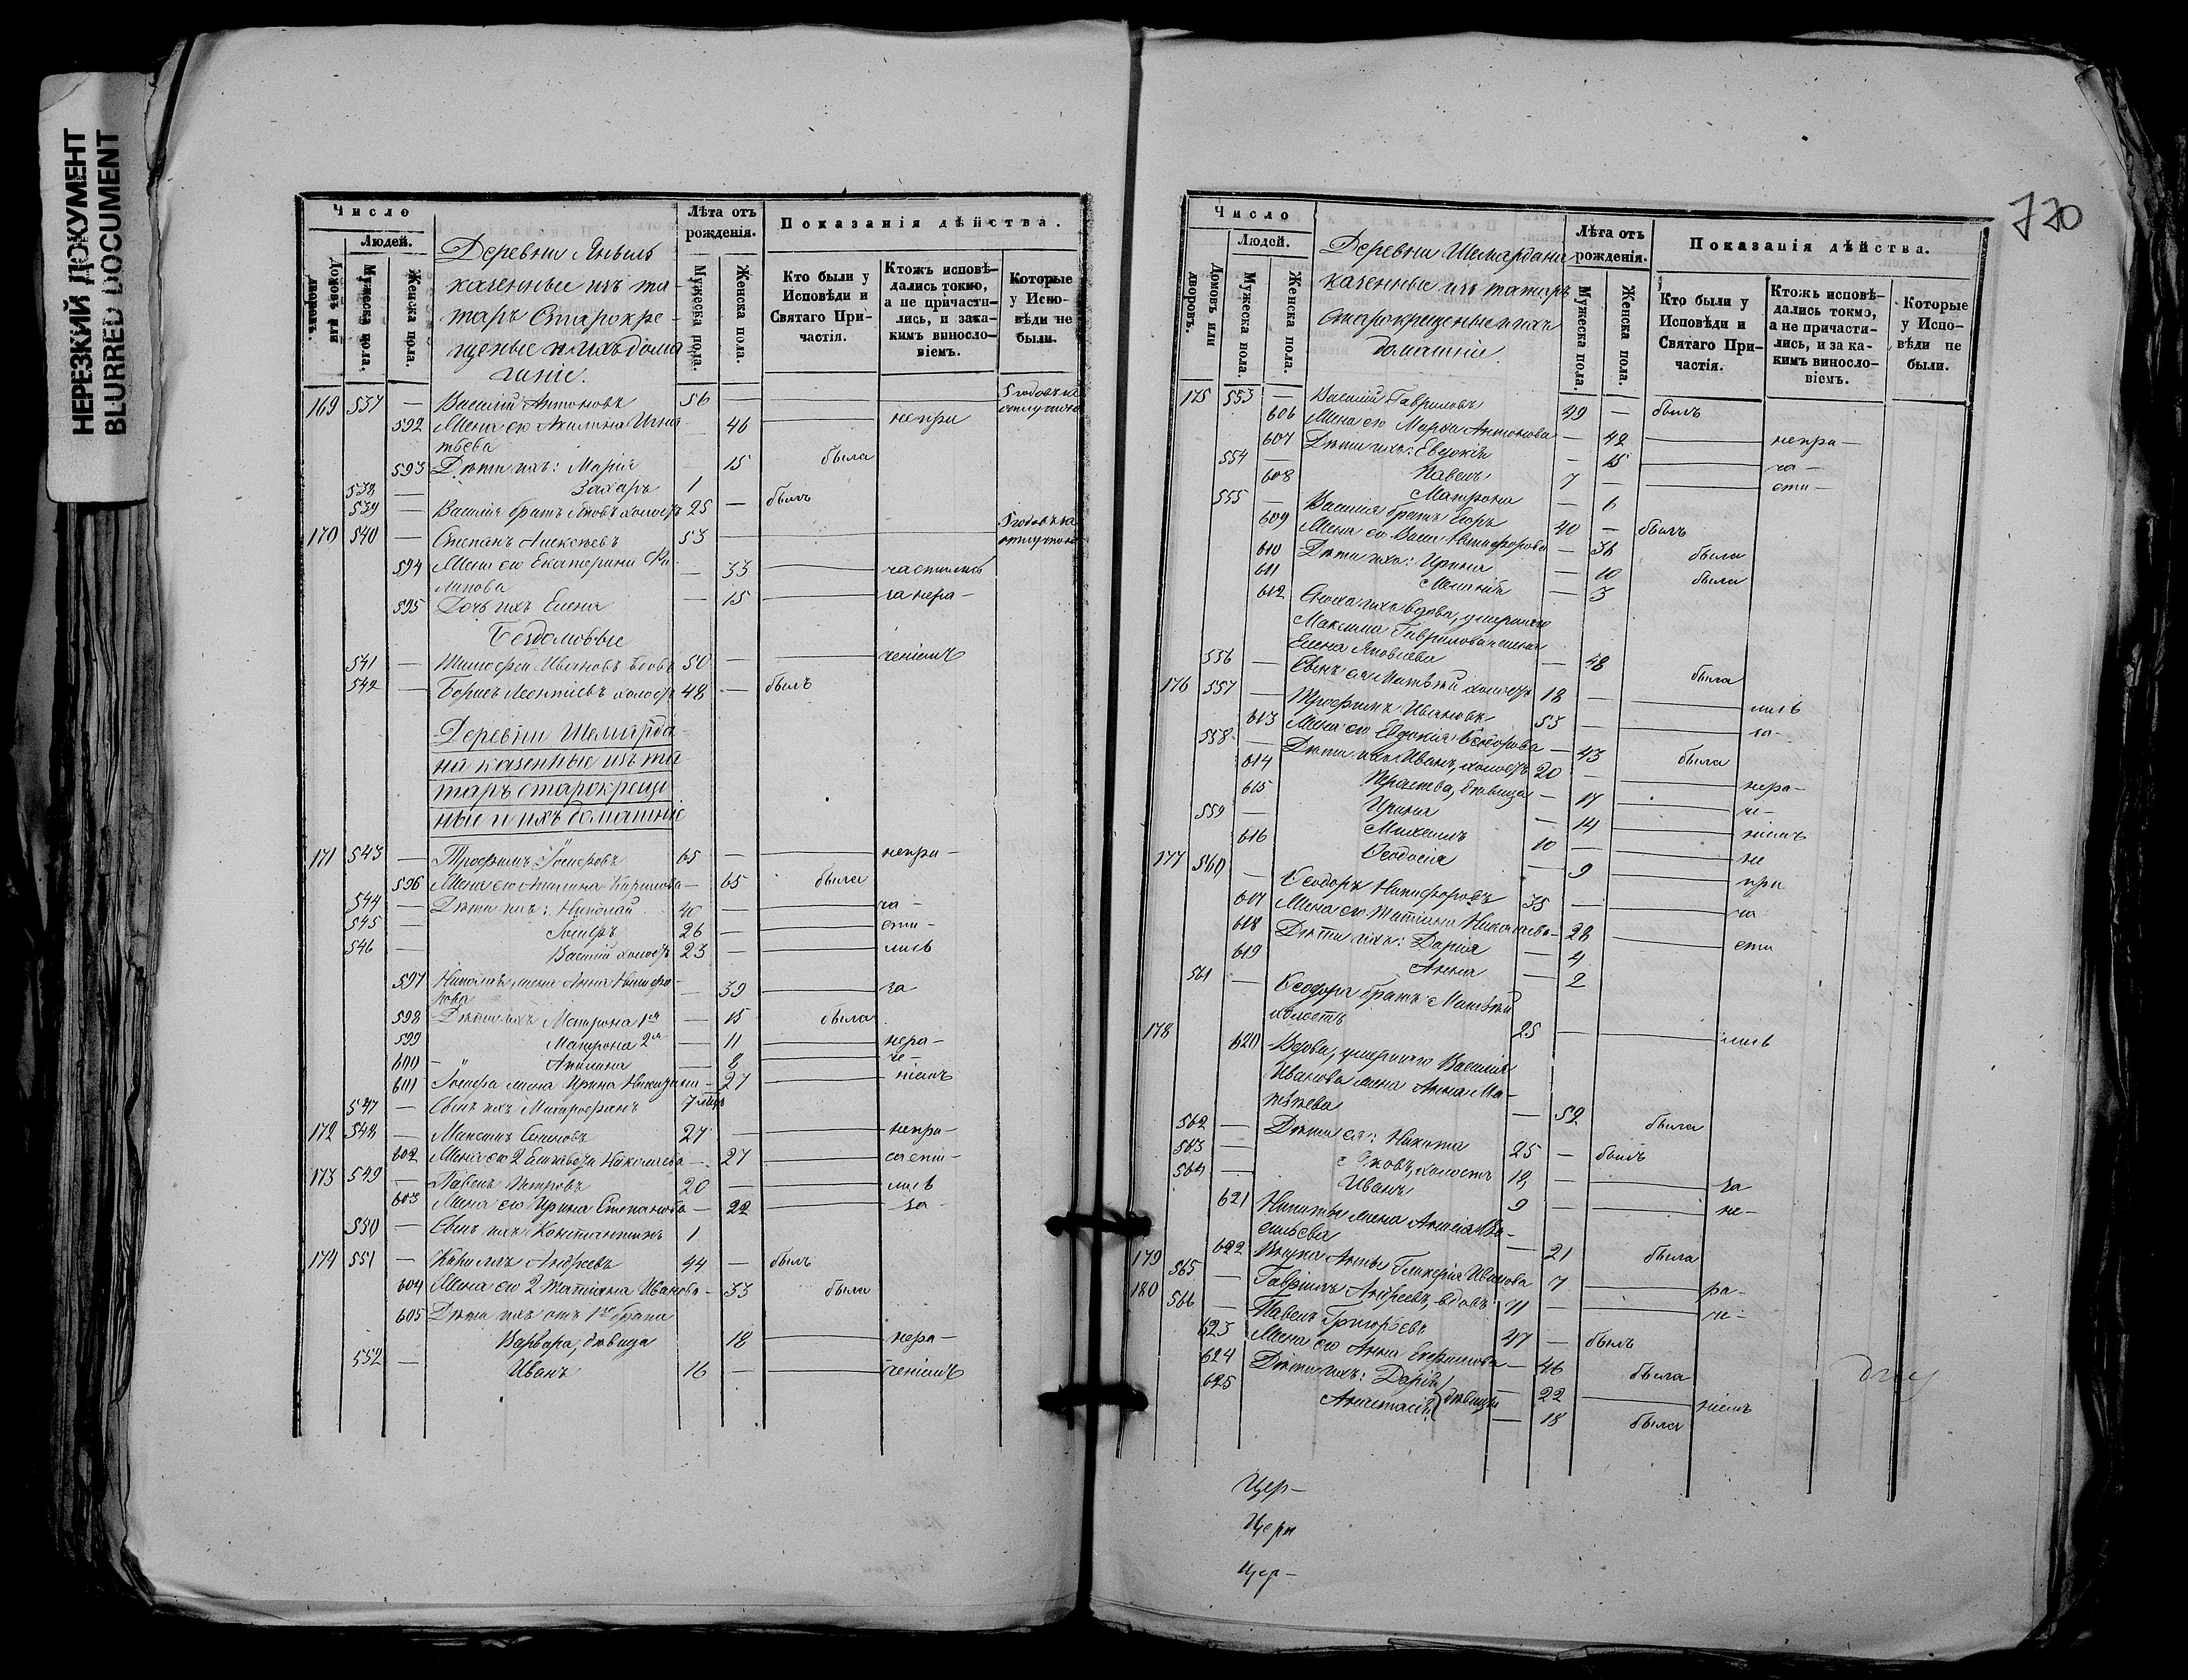 НЕРЕЗКИЙ ДОКУМЕНТ
BLURRED DOCUMENT
Число
Людей.
Домовъ или дворовъ.
Мужеска пола.
Женска пола.
Деревни
казенные изъ та-
таръ Старокре-
щеные и ихъ дома
шніе.
Лѣта отъ рожденія.
Мужеска пола.
Женска пола.
Показанія дѣйства.
Кто были у Исповѣди и Святаго При-частія.
Ктожъ исповѣ-дались токмо, а не причасти-лись, и за ка-кимъ винosло-віемъ.
Которые у Испо-вѣди не были.
169 537 — Василій Антоновъ 56 — 5 годовъ въ отлучкѣ
592 Жена его Акилина Игна 46 непри
тьева
593 Дѣти ихъ: Марія 15 была
538 — Захаръ 1
539 — Василія братъ Яковъ холостъ 25 — былъ
170 540 — Степанъ Алексѣевъ 53 — 5 годовъ въ отлучкѣ
594 Жена его Екатерина Фи — 33 частились
липова
595 Дочь ихъ Елена — 15 за нера-
Бездомовые
541 — Тимофей Ивановъ вдовъ 50 — ченіемъ
542 — Борисъ Леонтіевъ холостъ 48 — былъ
Деревни Шемарда
на казенные изъ та
таръ старокреще
ные и ихъ домашніе
171 543 — Трофимъ Іосифовъ 65 — непри-
596 Жена его Акилина Кирилова — 65 была
544 — Дѣти ихъ: Николай 40 — ча-
545 — Іосифъ 26 — сти-
546 — Василій холостъ 23 — лись
597 Николая жена Анна Никифо — 39 за
рова
598 Дѣти ихъ Матрона 1я — 15 была
599 Матрона 2я — 11 нера-
600 — " Акилина — 8 че-
601 Іосифа жена Ирина — 27 ніемъ
547 — Сынъ ихъ Митрофанъ 7 мѣс
172 548 — Максимъ Семеновъ 27 — непри-
602 Жена его 2 Елизавета Николаева — 27 части-
173 549 — Павелъ Петровъ 20 — лись
603 Жена его Ирина Степанова — 22 за-
550 — Сынъ ихъ Константинъ 1
174 551 — Кирилъ Андреевъ 44 — былъ
604 Жена его 2 Татіана Иванова — 33 была
605 Дѣти ихъ отъ 1го брака
Варвара, дѣвица 18 нера-
552 — Иванъ 16 — ченіемъ
770
Число
Людей.
Домовъ или дворовъ.
Мужеска пола.
Женска пола.
Деревни Шемардана
казенные изъ татаръ
старокрещеные и ихъ
домашніе.
Лѣта отъ рожденія.
Мужеска пола.
Женска пола.
Показанія дѣйства.
Кто были у Исповѣди и Святаго При-частія.
Ктожъ исповѣ-дались токмо, а не причасти-лись, и за ка-кимъ винoсло-віемъ.
Которые у Испо-вѣди не были.
175 553 — Василій Гавриловъ 49 — былъ
606 Жена его Марфа Антонова — 42 непри-
607 Дѣти ихъ: Евдокія — 15 ча-
554 — Павелъ 7 — сти-
608 Матрона — 6
555 — Василія братъ Егоръ 40 — былъ
609 Жена его Никифорова — 36 была
610 Дѣти ихъ: Ирина — 10 была
611 Меланія — 3
612 Сноха ихъ вдова, умершаго
Максима Гаврилова жена
Елена Яковлева — 48 была
556 — Сынъ ея Матѳей холостъ 18 — лись
176 557 — Трофимъ Ивановъ 53 — за-
613 Жена его Евдокія Ѳеодорова — 43 была
558 — Дѣти ихъ Иванъ, холостъ 20 — нера-
614 дѣвица — 17 че-
615 Ирина — 14 ніемъ
559 — Михаилъ 10 — не
616 Ѳеодосія — 9 при
177 560 — Ѳеодоръ Никифоровъ 35 — ча
617 Жена его Татіана Николаева — 28 сти
618 Дѣти ихъ: Дарія — 4
619 Анна — 2
561 — Ѳеодора братъ Матѳей
холостъ 25 — лись
178 620 Вдова, умершаго Василія
Иванова жена Анна Ма-
тѳеева — 59 была
562 — Дѣти ея: Никита 25 — былъ
563 — Яковъ, холостъ 18 — за
564 — Иванъ 9 — не-
621 Никиты жена Ва-
сильева — 21 была
622 Внука Анны Гликерія Иванова 7 ра-
179 565 — Гавріилъ Андреевъ, вдовъ 71 — че-
180 566 — Павелъ Григорьевъ 47 — былъ
623 Жена его Анна Ефимова — 46 была
624 Дѣти ихъ: Дарія дѣвицы — 22 ніемъ
625 Анастасія — 18 была
Цер-
Церк
Цер-